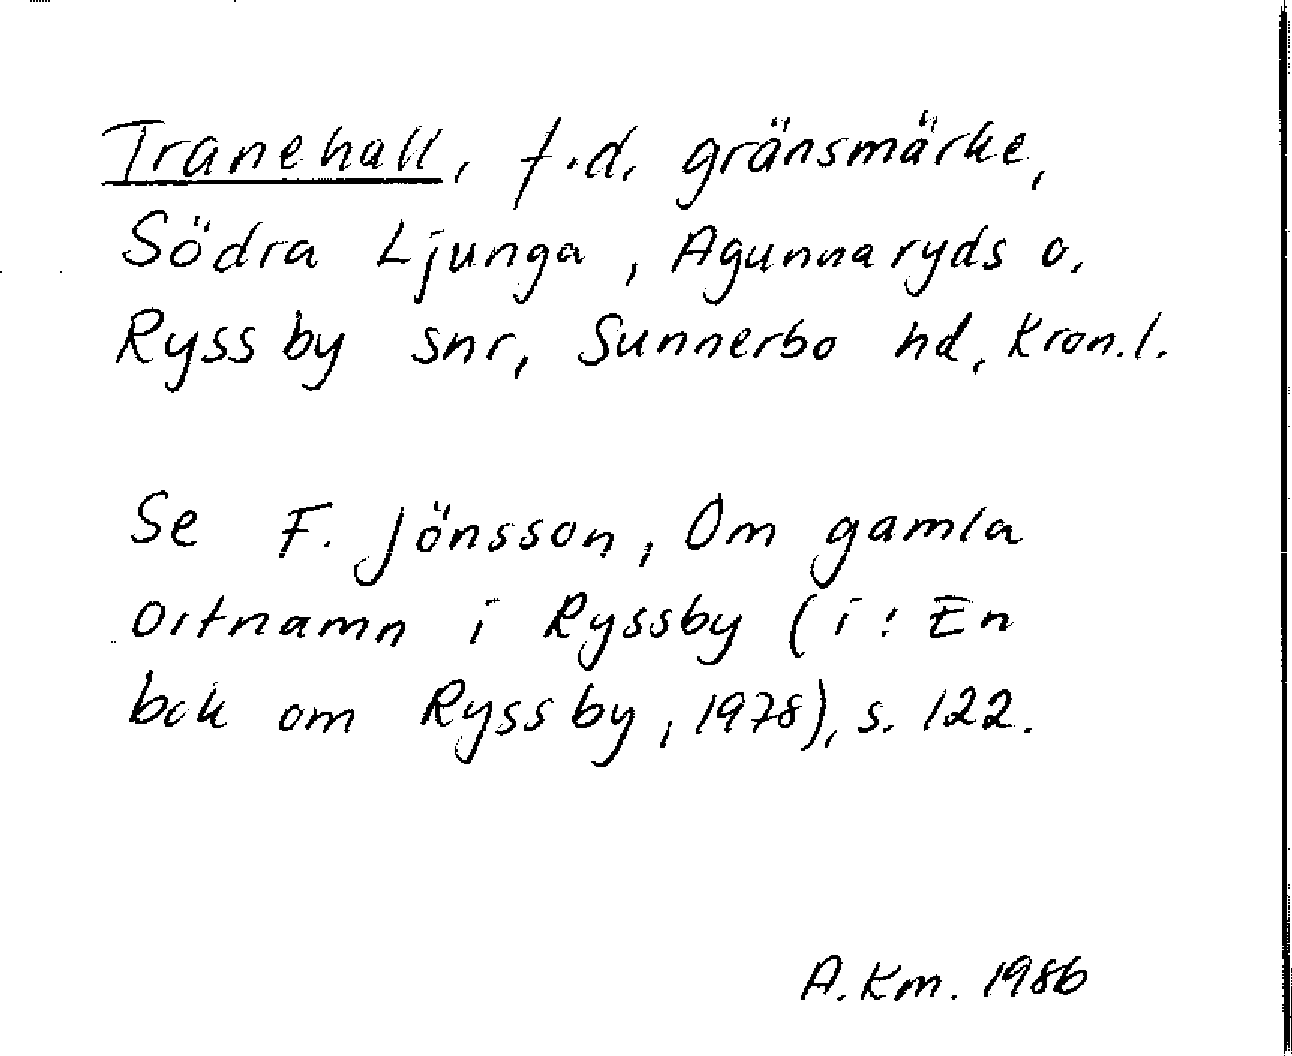 Tranehall, f.d. gränsmärke,
Södra Ljunga, Agunnaryds o.
Ryssby snr, Sunnerbo hd, Kron.l.
Se F. Jönsson, Om gamla
ortnamn i Ryssby (i: En
bok om Ryssby, 1978), s. 122.
A.Km. 1986